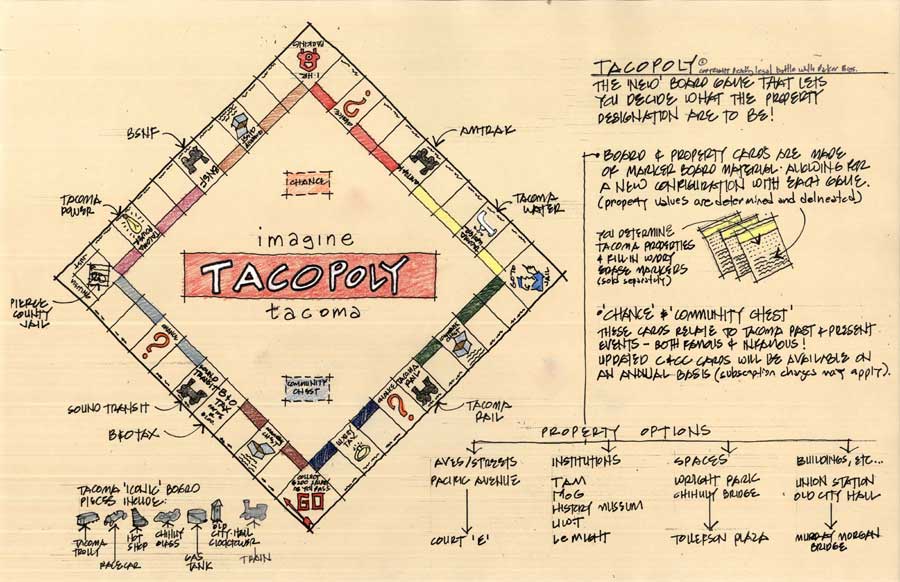 TACOPOLY ©
copyright pending legal battle with Parker Bros.
THE 'NEW' BOARD GAME THAT LETS
YOU DECIDE WHAT THE PROPERTY
DESIGNATION ARE TO BE!
• BOARD & PROPERTY CARDS ARE MADE
OF MARKER BOARD MATERIAL. ALLOWING FOR
A NEW CONFIGURATION WITH EACH GAME.
(property values are determined and delineated)
YOU DETERMINE
TACOMA PROPERTIES
& FILL IN W/DRY
ERASE MARKERS
(sold separately)
• 'CHANCE' & 'COMMUNITY CHEST'
THESE CARDS RELATE TO TACOMA PAST & PRESENT
EVENTS - BOTH FAMOUS & INFAMOUS!
UPDATED C&CC CARDS WILL BE AVAILABLE ON
AN ANNUAL BASIS (subscription charges may apply).
PROPERTY OPTIONS
AVES/STREETS
PACIFIC AVENUE
COURT 'E'
INSTITUTIONS
TAM
MOG
HISTORY MUSEUM
UWT
LEMIGHT
SPACES
WRIGHT PARK
CHIHULY BRIDGE
TOLLEFSON PLAZA
BUILDINGS, ETC...
UNION STATION
OLD CITY HALL
MURRAY MORGAN
BRIDGE
BSNF
AMTRAK
TACOMA
POWER
TACOMA
WATER
PIERCE
COUNTY
JAIL
SOUND TRANSIT
B&O TAX
TACOMA
RAIL
1-HR
PARKING
CHANCE
imagine
TACOPOLY
tacoma
COMMUNITY
CHEST
BSNF
AMTRAK
TACOMA
POWER
TACOMA
WATER
JUST
VISITING
GO TO
JAIL
CHANCE
SOUND
TRANSIT
B&O
TAX
TACOMA
RAIL
CHANCE
LUXURY
TAX
COLLECT
$200 SALARY
AS YOU PASS
GO
TACOMA 'ICONIC' BOARD
PIECES INCLUDE:
TACOMA
TROLLY
RACECAR
HOT
SHOP
CHIHULY
GLASS
GAS
TANK
OLD
CITY HALL
CLOCKTOWER
TRAIN